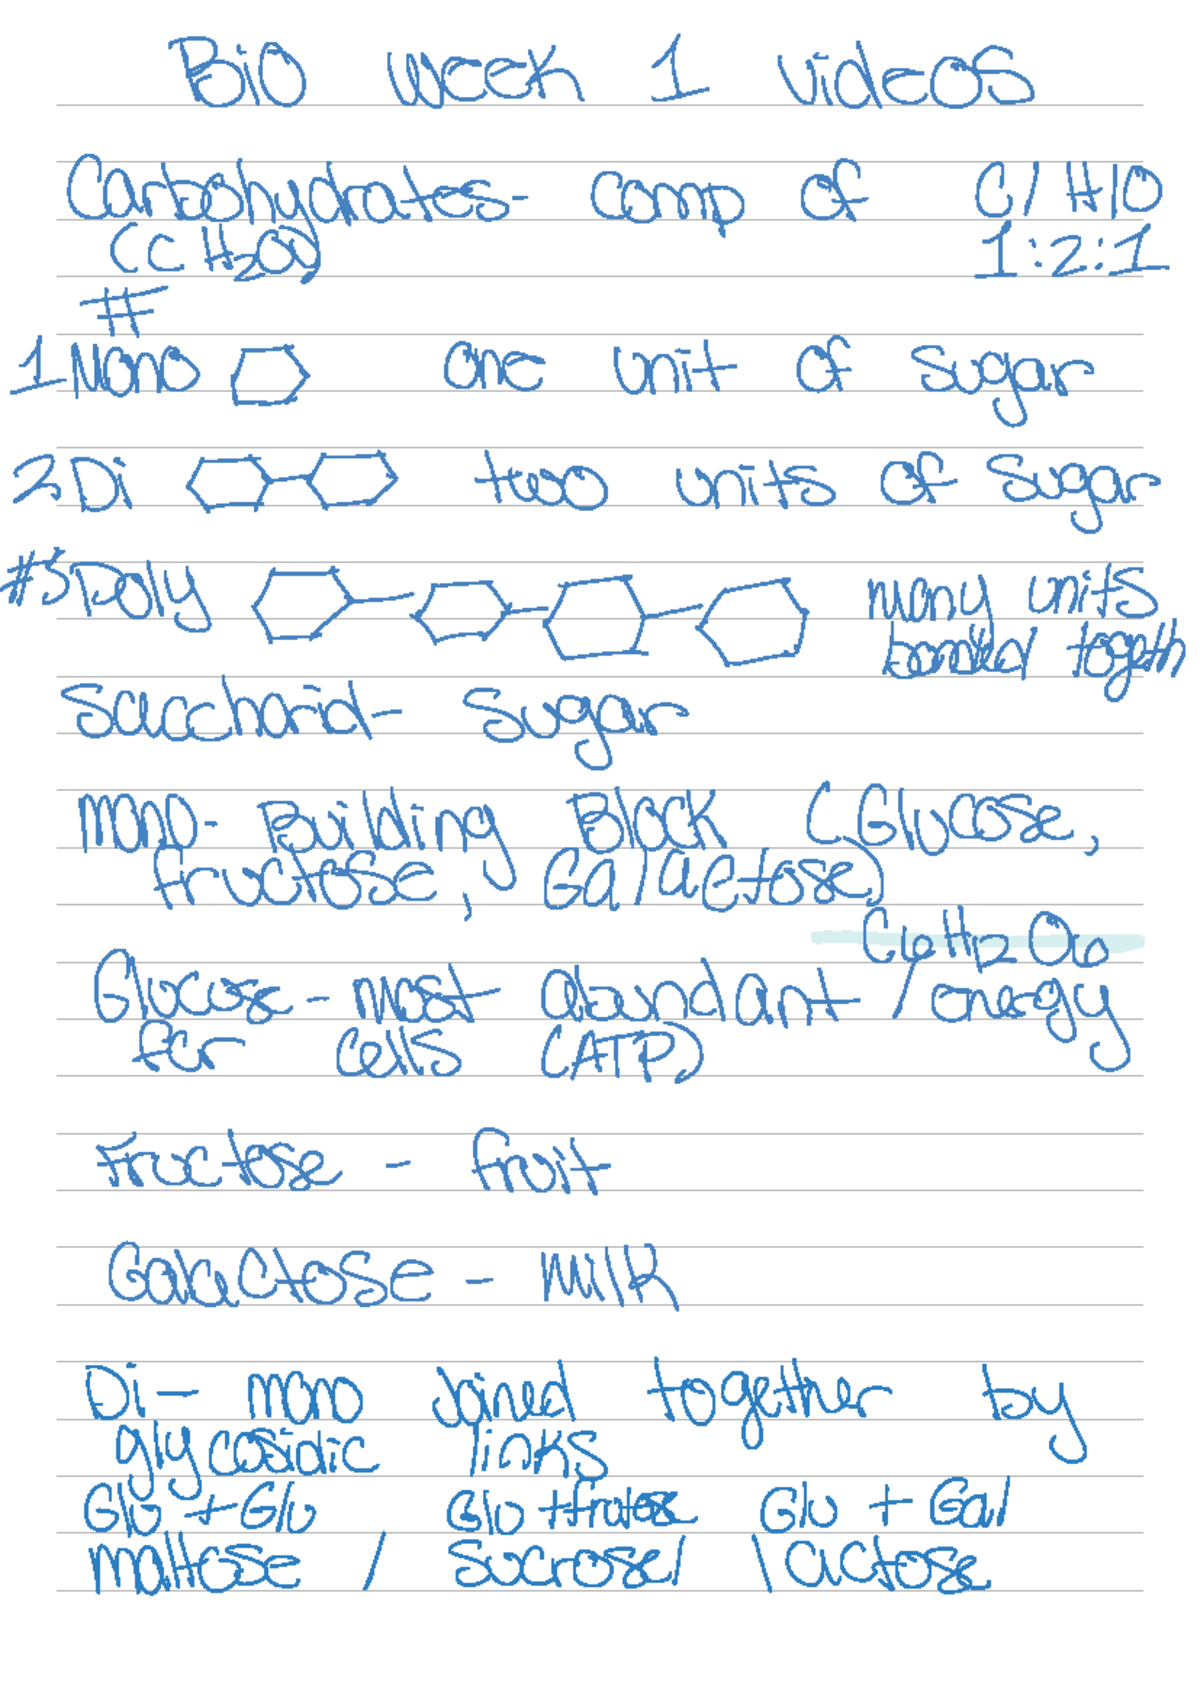 Bio week 1 videos
Carbohydrates- comp of C/H/O
(CH₂O) 1:2:1
#
1 Mono one unit of sugar
2 Di two units of sugar
#3 Poly many units
bonded togeth
Saccharid- Sugar
mono- Building Block (Glucose,
fructose, Galactose)
C6H12O6
Glucose- most abundant / energy
for cells (ATP)
Fructose - fruit
Galactose - Milk
Di- mono joined together by
glycosidic links
Glu + Glu Glu + Gal
maltose / sucrose / lactose